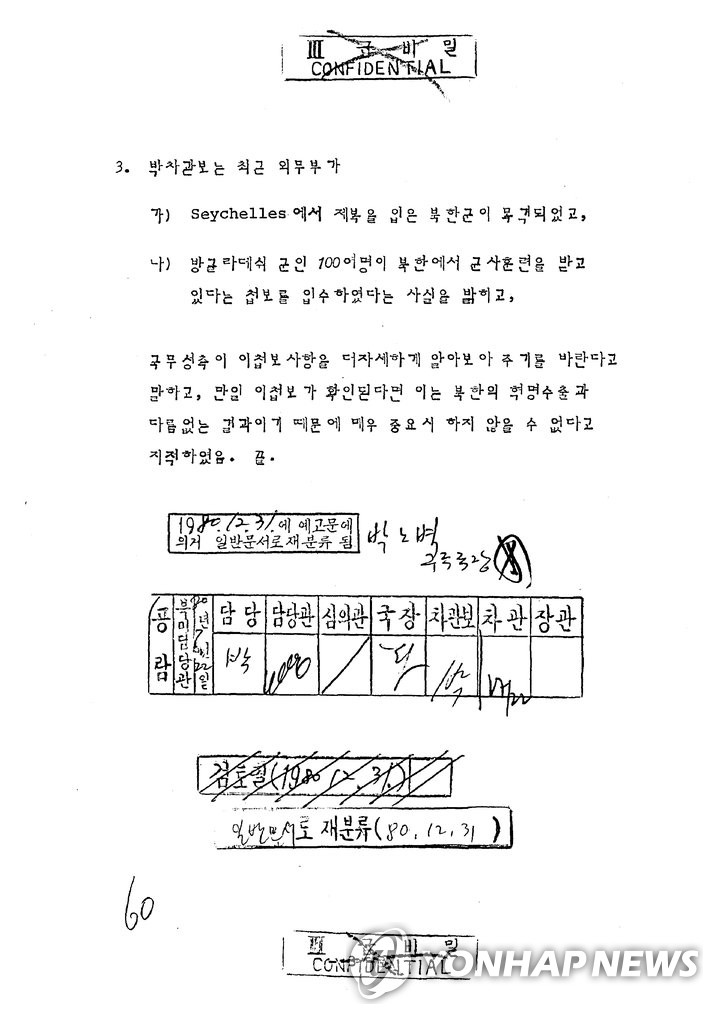 III 군 비 밀
CONFIDENTIAL
3. 박차관보는 최근 외무부가
가) Seychelles 에서 제복을 입은 북한군이 목격되었고,
나) 방글라데쉬 군인 100여명이 북한에서 군사훈련을 받고
있다는 첩보를 입수하였다는 사실을 밝히고,
국무성측이 이첩보사항을 더자세하게 알아보아 주기를 바란다고
말하고, 만일 이첩보가 확인된다면 이는 북한의 혁명수출과
다름없는 결과이기 때문에 매우 중요시 하지 않을 수 없다고
지적하였음. 끝.
1980.12.31.에 예고문에
의거 일반문서로재분류 됨
박노벽
공람 북미담당관 80년 7월 22일 담당 담당관 심의관 국장 차관보 차관 장관
박
검토필(1980.12.31.)
일반문서로 재분류(80.12.31)
60
III 군 비 밀
CONFIDENTIAL
YONHAP NEWS